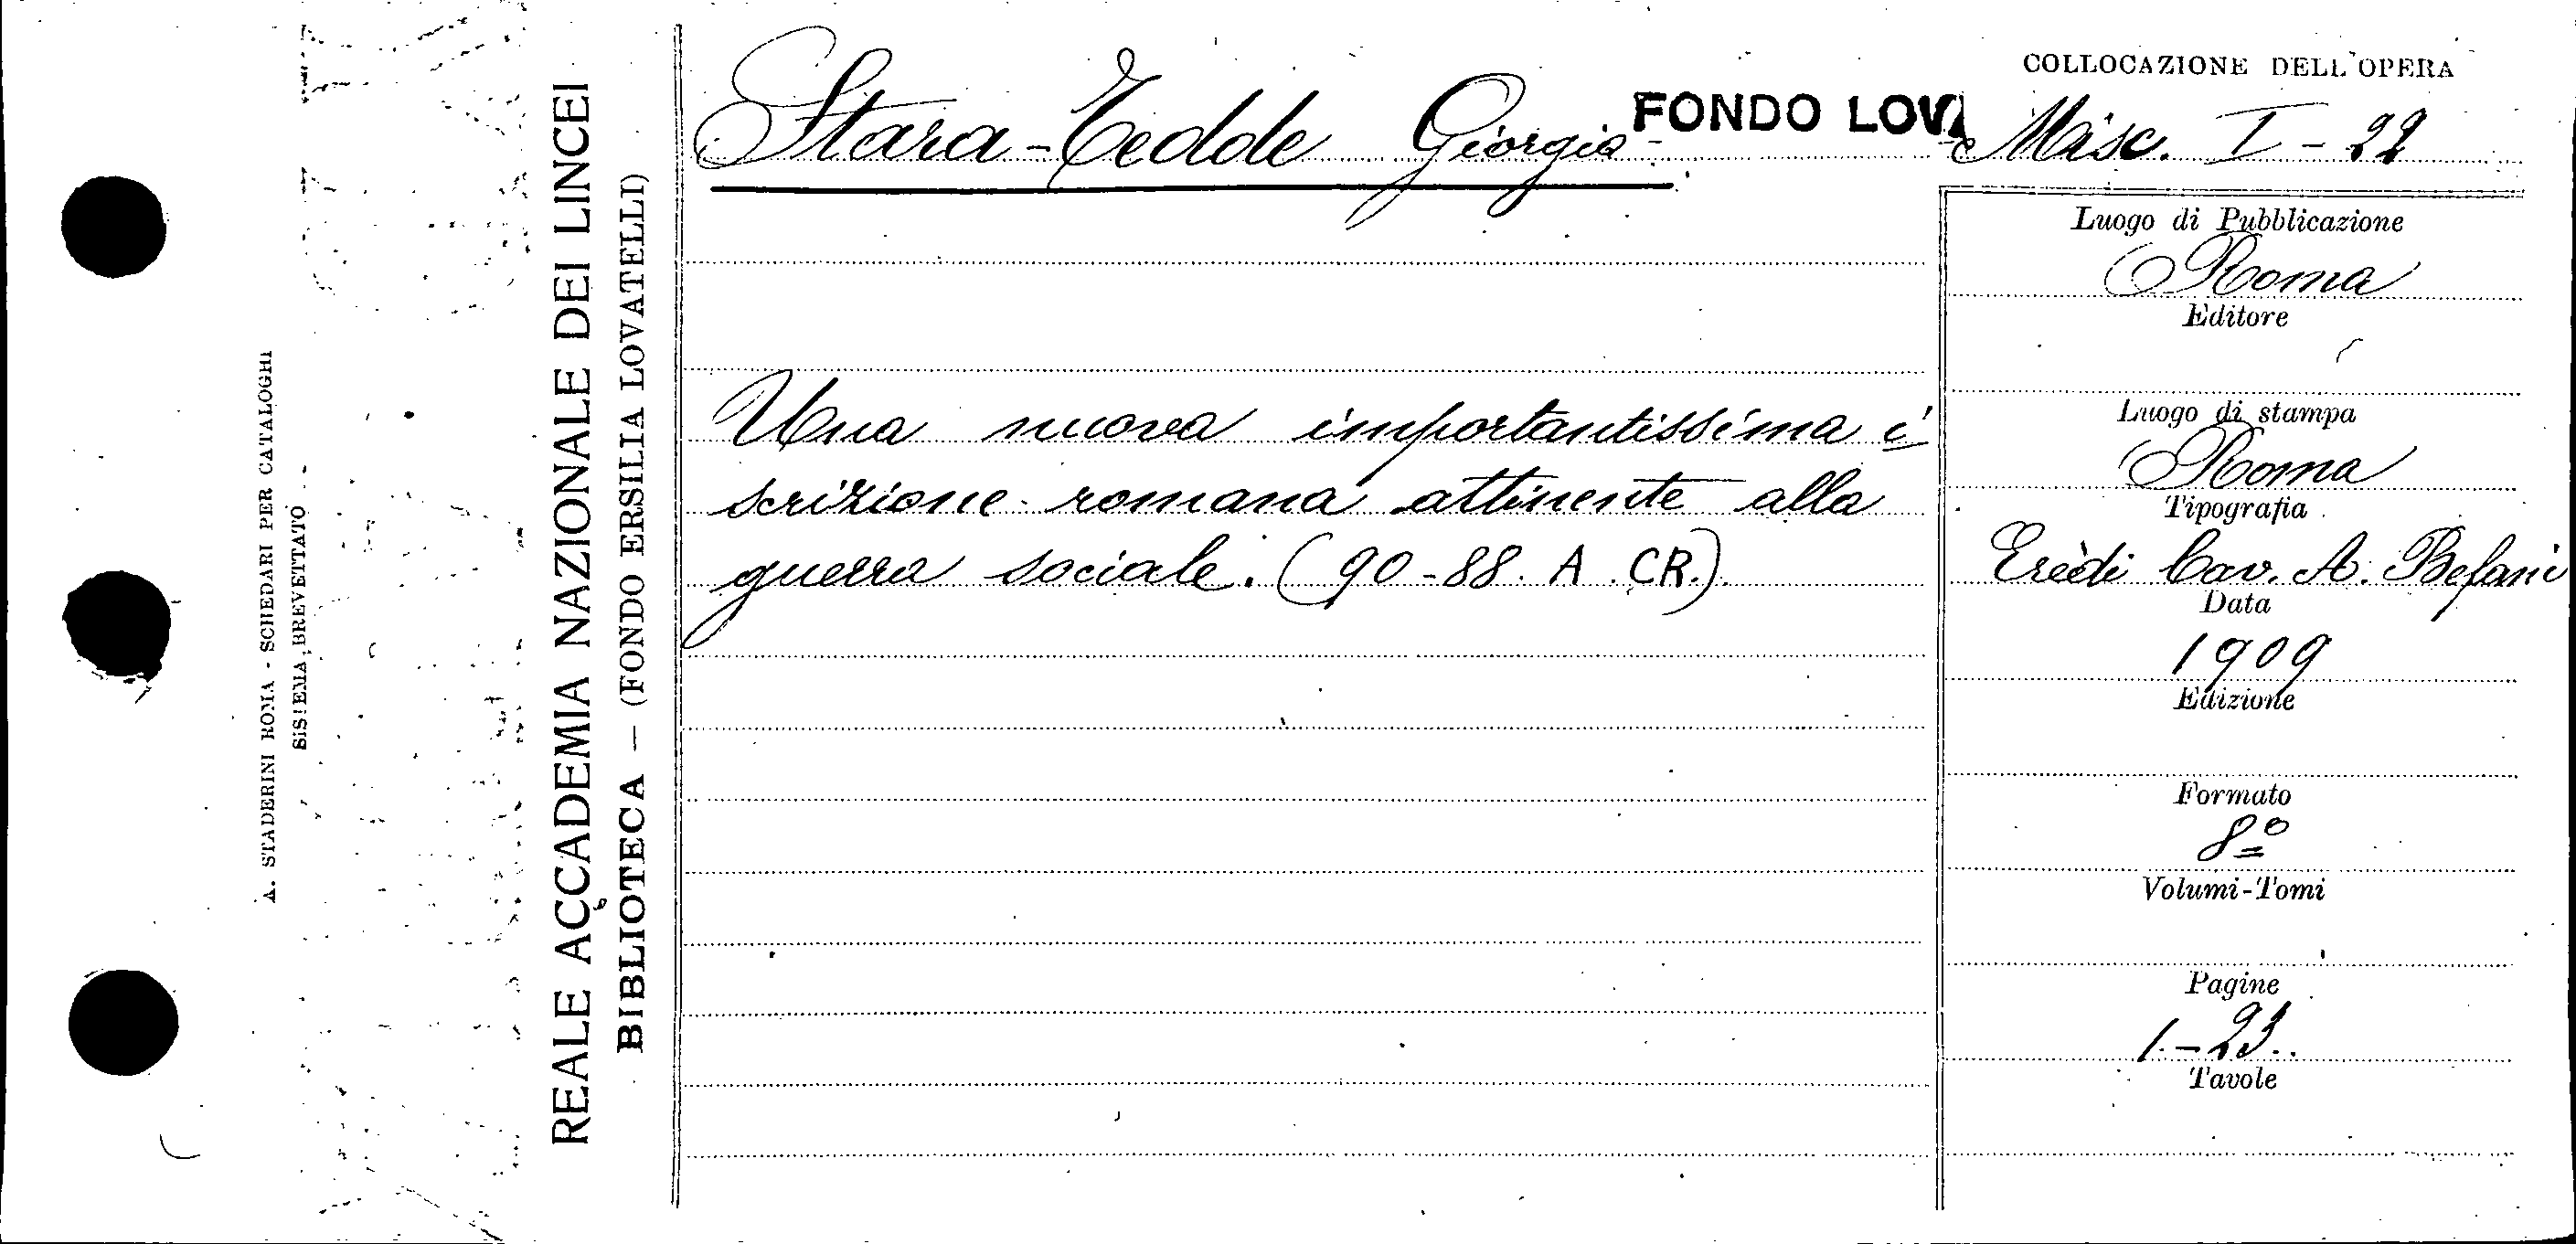 A. STADERINI ROMA - SCHEDARI PER CATALOGHI
SISTEMA BREVETTATO
REALE ACCADEMIA NAZIONALE DEI LINCEI
BIBLIOTECA — (FONDO ERSILIA LOVATELLI)
Stara-Tedde Giorgio
FONDO LOVA
Una nuova importantissima i
scrizione romana attinente alla
guerra sociale. (90-88. A. CR.)
COLLOCAZIONE DELL'OPERA
Misc. I - 22
Luogo di Pubblicazione
Roma
Editore
Luogo di stampa
Roma
Tipografia
Eredi Cav. A. Befani
Data
1909
Edizione
Formato
8º
Volumi-Tomi
Pagine
1-23.
Tavole